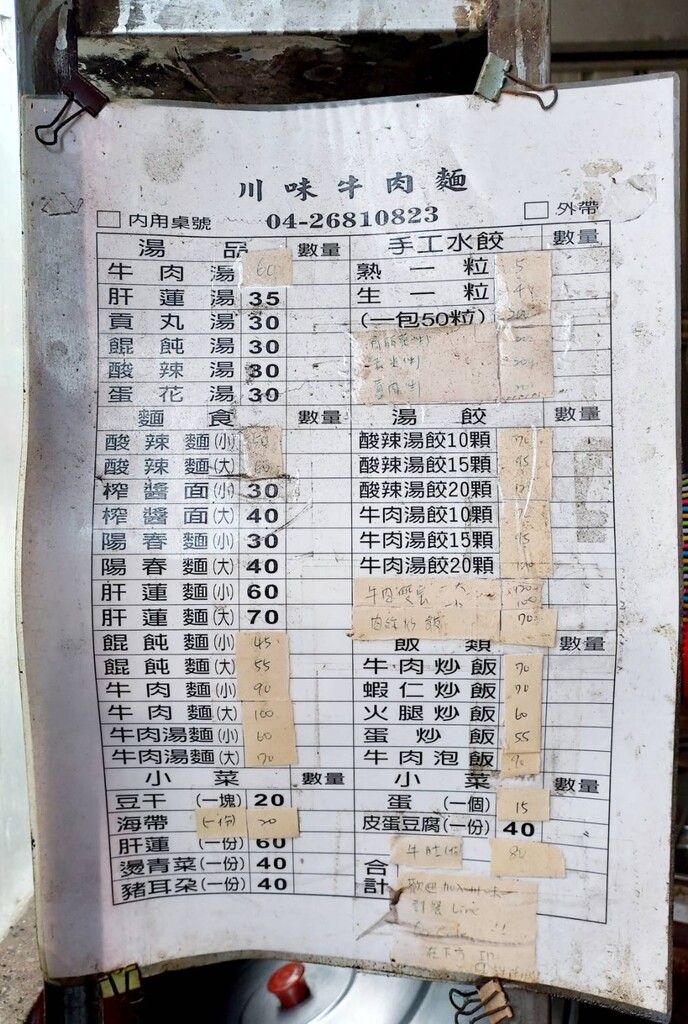 川味牛肉麵
內用桌號 04-26810823 外帶
湯品 數量
牛肉湯 60
肝蓮湯 35
貢丸湯 30
餛飩湯 30
酸辣湯 30
蛋花湯 30
麵食 數量
酸辣麵(小) 50
酸辣麵(大) 60
榨醬面(小) 30
榨醬面(大) 40
陽春麵(小) 30
陽春麵(大) 40
肝蓮麵(小) 60
肝蓮麵(大) 70
餛飩麵(小) 45
餛飩麵(大) 55
牛肉麵(小) 90
牛肉麵(大) 100
牛肉湯麵(小) 60
牛肉湯麵(大) 70
小菜 數量
豆干(一塊) 20
海帶 20
肝蓮(一份) 60
燙青菜(一份) 40
豬耳朵(一份) 40
手工水餃 數量
熟一粒 5
生一粒
(一包50粒)
湯餃 數量
酸辣湯餃10顆 70
酸辣湯餃15顆 95
酸辣湯餃20顆
牛肉湯餃10顆
牛肉湯餃15顆 95
牛肉湯餃20顆
70
飯類 數量
牛肉炒飯 70
蝦仁炒飯 70
火腿炒飯 60
蛋炒飯 55
牛肉泡飯
小菜 數量
蛋(一個) 15
皮蛋豆腐(一份) 40
合計